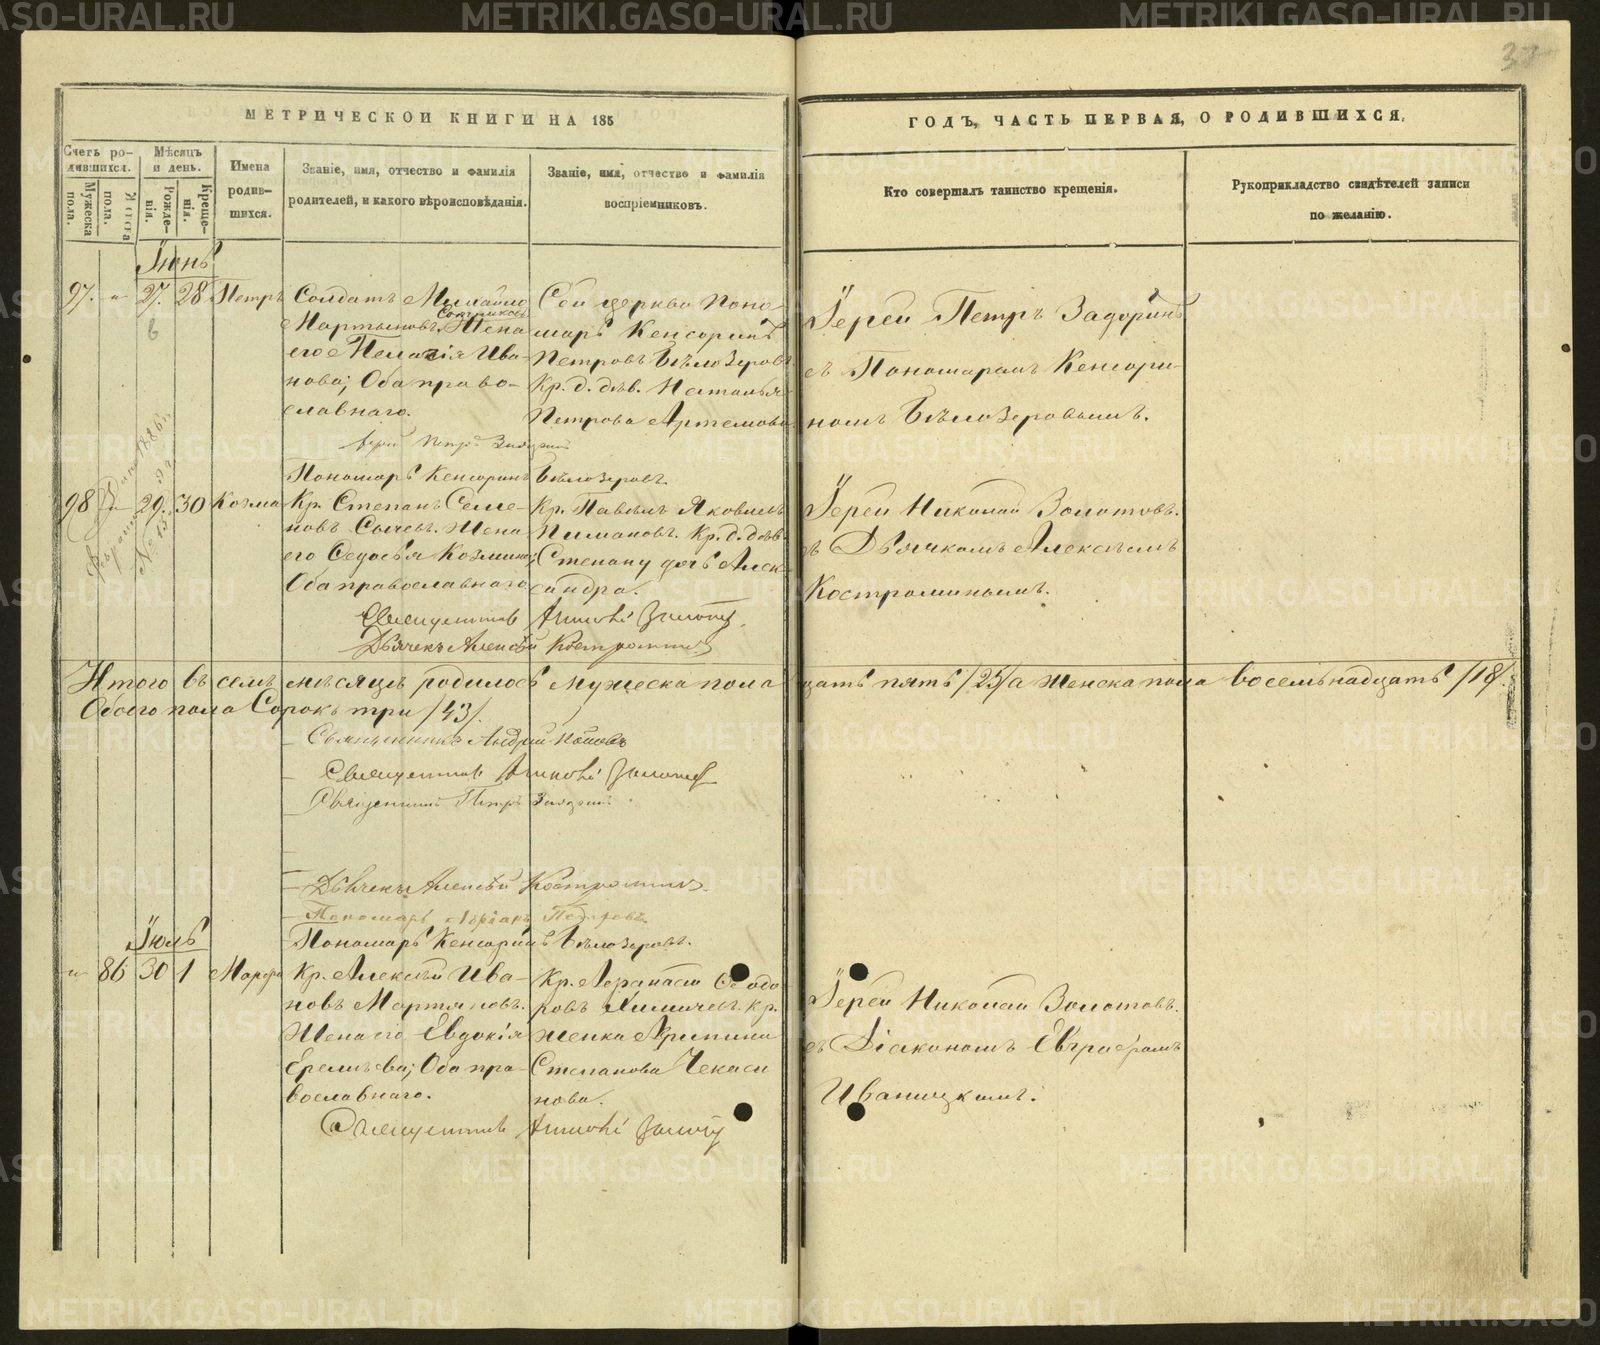 МЕТРИЧЕСКОИ КНИГИ НА 185
ГОДЪ, ЧАСТЬ ПЕРВАЯ, О РОДИВШИХСЯ,
Счетъ ро-
дившихся.
Мужеска
пола.
Женска
пола.
Мѣсяцъ
и день.
Рожде-
нія.
Креще-
нія.
Имена
родив-
шихся.
Званіе, имя, отчество и фамилія
родителей, и какого вѣроисповѣданія.
Званіе, имя, отчество и фамилія
воспріемниковъ.
Кто совершалъ таинство крещенія.
Рукоприкладство свидѣтелей записи
по желанію.
Іюнь
97. 27. 28 Петръ
Солдатъ Михайло
Мартыновъ. Жена
его Пелагія Ива-
нова; Оба право-
славнаго.
Сей церкви Поно-
марь Кенсоринъ
Петровъ Бѣлозеровъ
Кр. д. дѣв. Наталья
Петрова Артемова
Іерей Петръ Задоринъ
съ Пономаремъ Кенсори-
номъ Бѣлозеровымъ.
Пономарь Кенсоринъ Бѣлозеровъ.
98 29. 30 Козма
Кр. Степанъ Семе-
новъ Сычевъ. Жена
его Федосья Козмина;
Оба православнаго
Кр. Павелъ Яковлевъ
Пимановъ. Кр. д. дѣв.
Степану дочь Алек-
сандра.
Іерей Николай Золотовъ.
съ Дьячкомъ Алексѣемъ
Костроминымъ.
Дьячекъ Алексѣй Костроминъ
Итого въ семъ мѣсяцѣ родилось мужеска пола
цать пять /25/ а женска пола восемьнадцать /18/.
Обоего пола Сорокъ три /43/.
Священникъ Андрей Поповъ
Священникъ Петръ
Дьячекъ Алексѣй Костроминъ.
Пономарь Кенсоринъ Бѣлозеровъ.
Іюль
86 30 1 Марфа
Кр. Алексѣй Ива-
новъ Мартыновъ.
Жена его Евдокія
Еремѣева; Оба пра-
вославнаго.
Кр. Ѳеодо-
ровъ Кр.
женка Агрипина
Степанова Чекаси
нова.
Іерей Николай Золотовъ.
съ Діакономъ Евграфомъ
Иваницкимъ.
METRIKI.GASO-URAL.RU